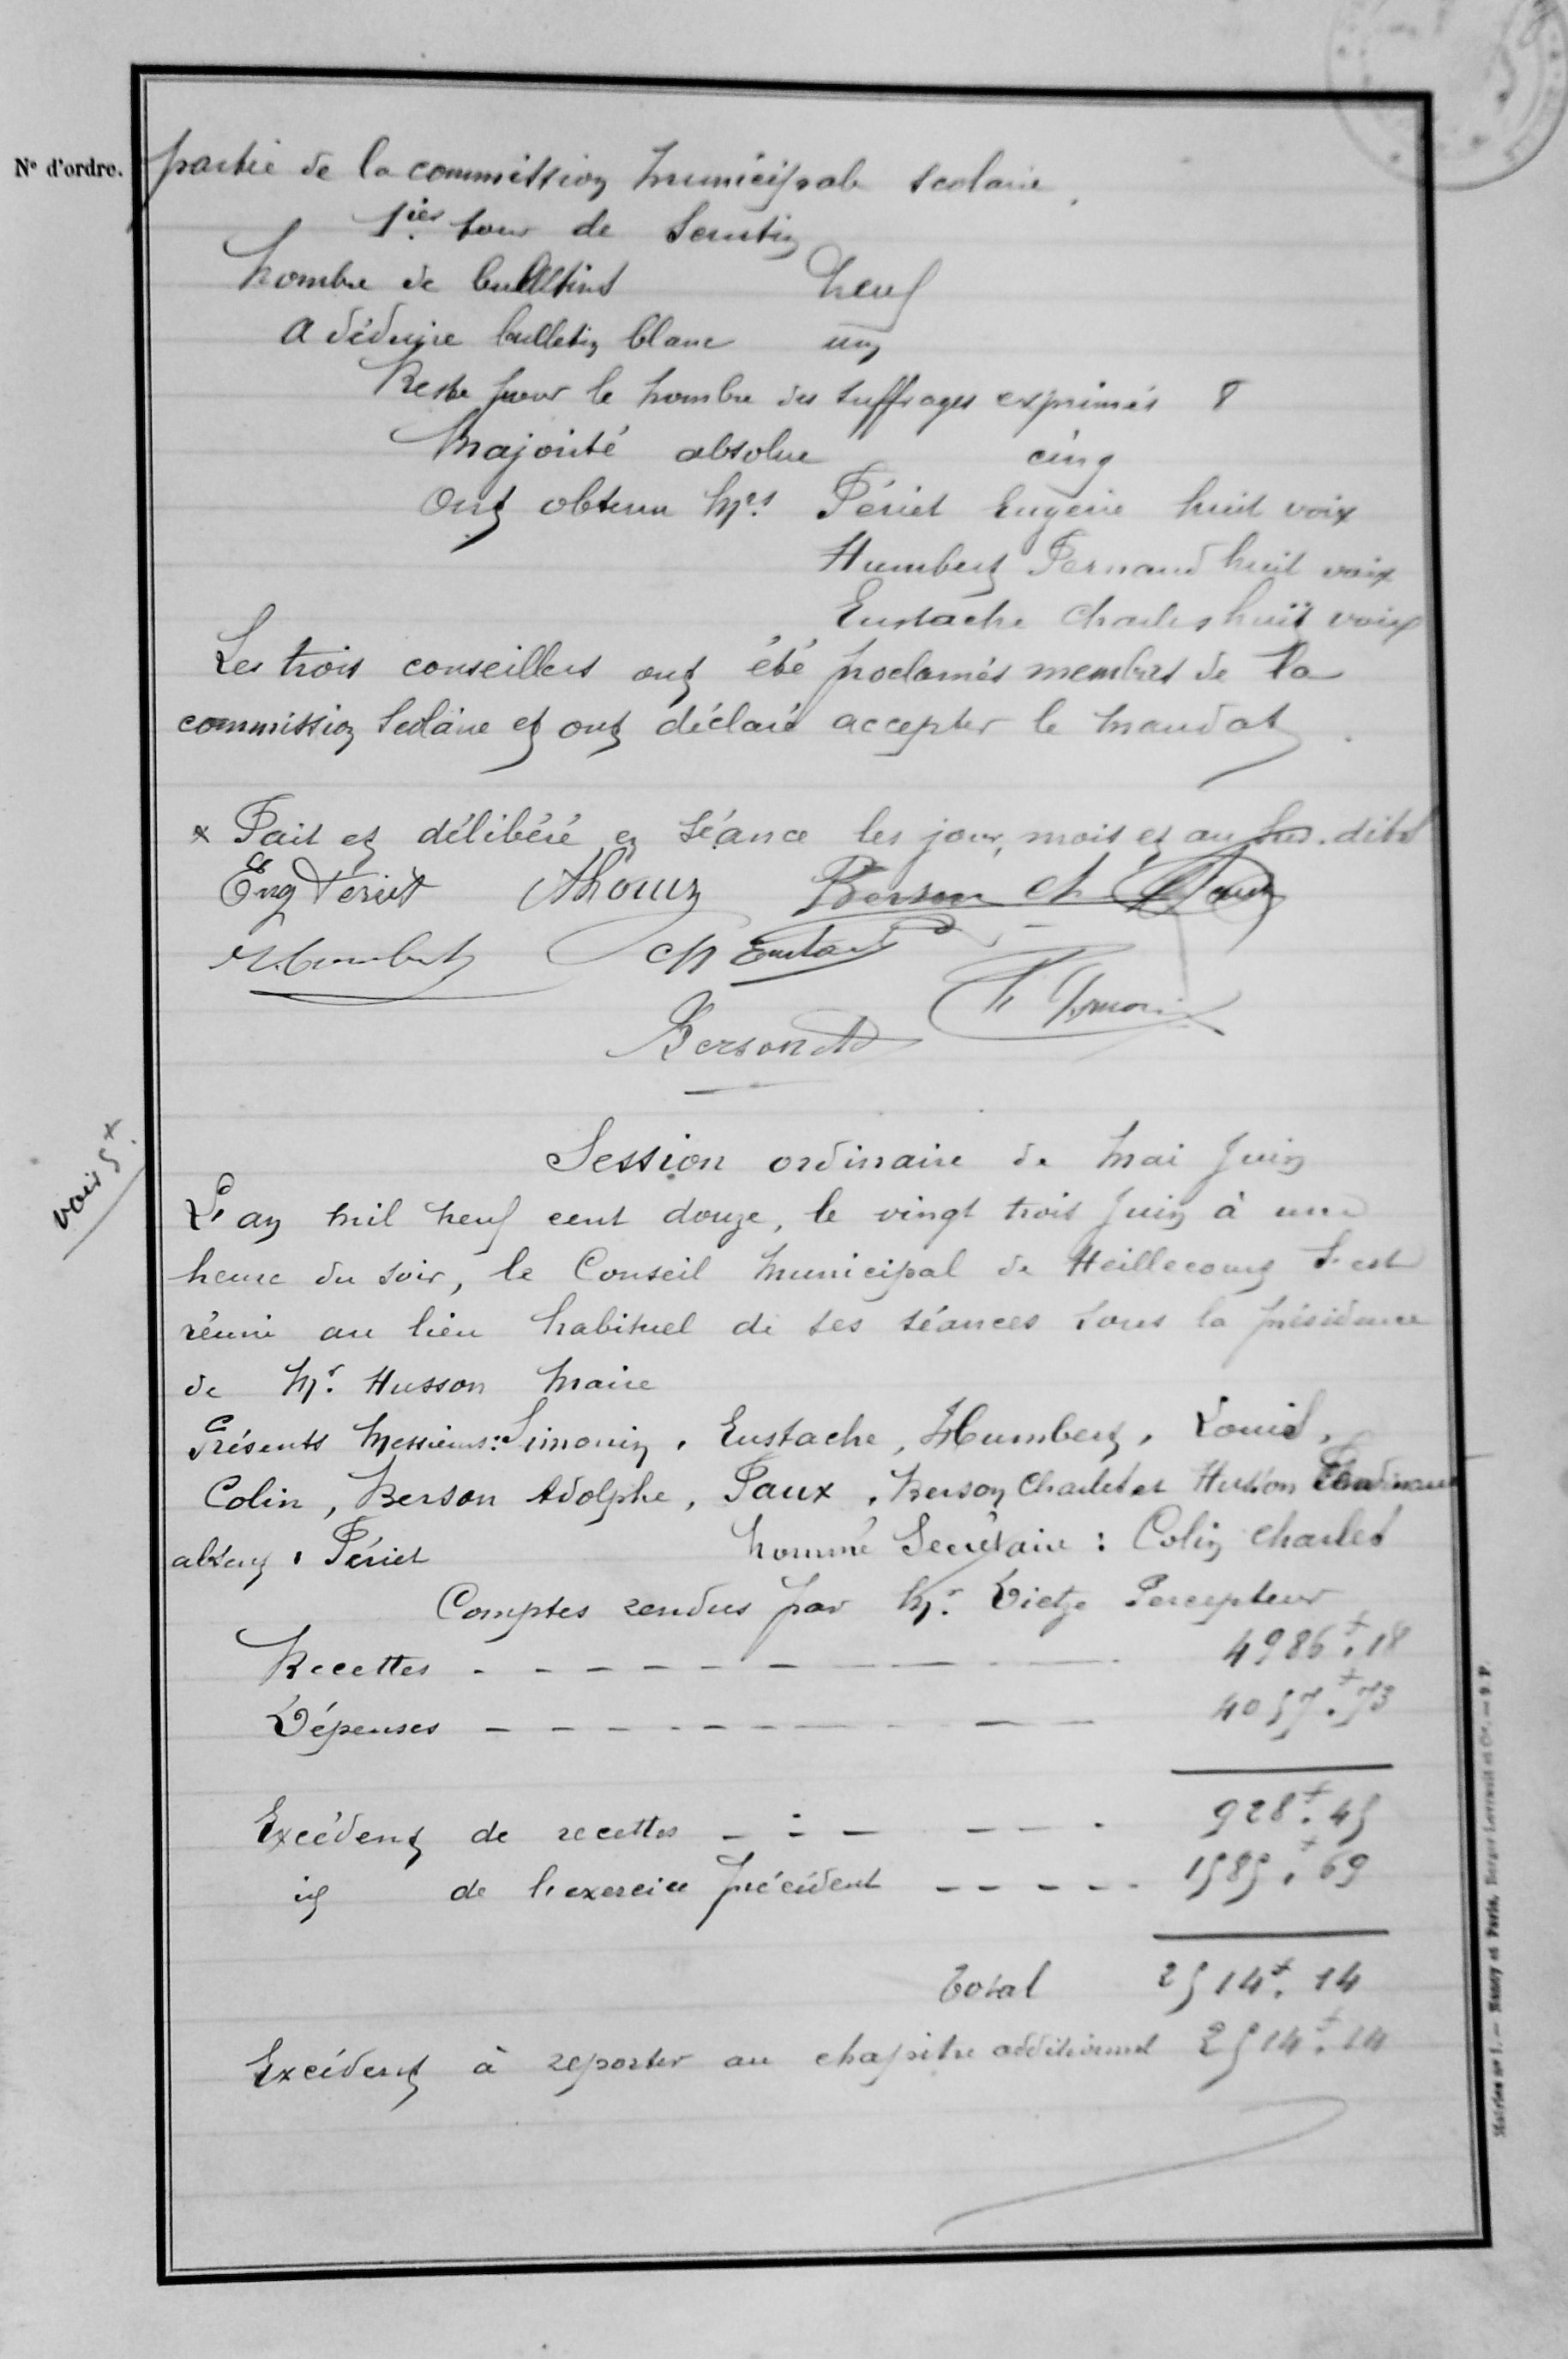 N° d'ordre.
partie de la commission municipale scolaire.
1ier tour de Scrutin
Nombre de bulletins neuf
A déduire bulletin blanc un
Reste pour le nombre des suffrages exprimés 8
Majorité absolue cinq
Ont obtenu Mrs Périet Eugène huit voix
Humbert Fernand huit voix
Eustache Charles huit voix
Les trois conseillers ont été proclamés membres de la
commission Scolaire et ont déclaré accepter le mandat.
x Fait et délibéré en séance les jour, mois et an sus-dits
Eug Périet Berson Ch
Humbert Ch Eustache
Berson Ad
voir 5x
Session ordinaire de Mai Juin
L'an mil neuf cent douze, le vingt trois Juin à une
heure du soir, le Conseil Municipal de Heillecourt s'est
réuni au lieu habituel de ses séances sous la présidence
de Mr. Husson Maire
Présents Messieurs: Simonin, Eustache, Humbert, Louis,
Colin, Berson Adolphe, Faux, Berson Charles et Husson Ferdinand
absent: Périet Nommé Secrétaire: Colin Charles
Comptes rendus par Mr. Dietze Percepteur
Recettes - - - - - - - - 4986f.18
Dépenses - - - - - - - - 4057f.73
Excédent de recettes - - - - - - 928f.45
id de l'exercice précédent - - - - - 1585f.69
Total 2514f.14
Excédent à reporter au chapitre additionnel 2514f.14
Mairies n° 1. — Nancy et Paris. Berger-Levrault et Cie. —